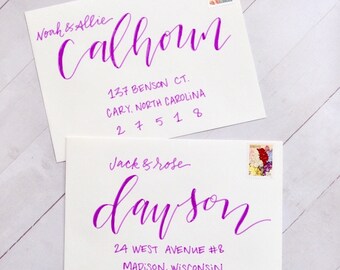 Noah & Allie
Calhoun
137 BENSON CT.
CARY, NORTH CAROLINA
2 7 5 1 8
Jack & rose
dawson
24 WEST AVENUE #8
MADISON, WISCONSIN